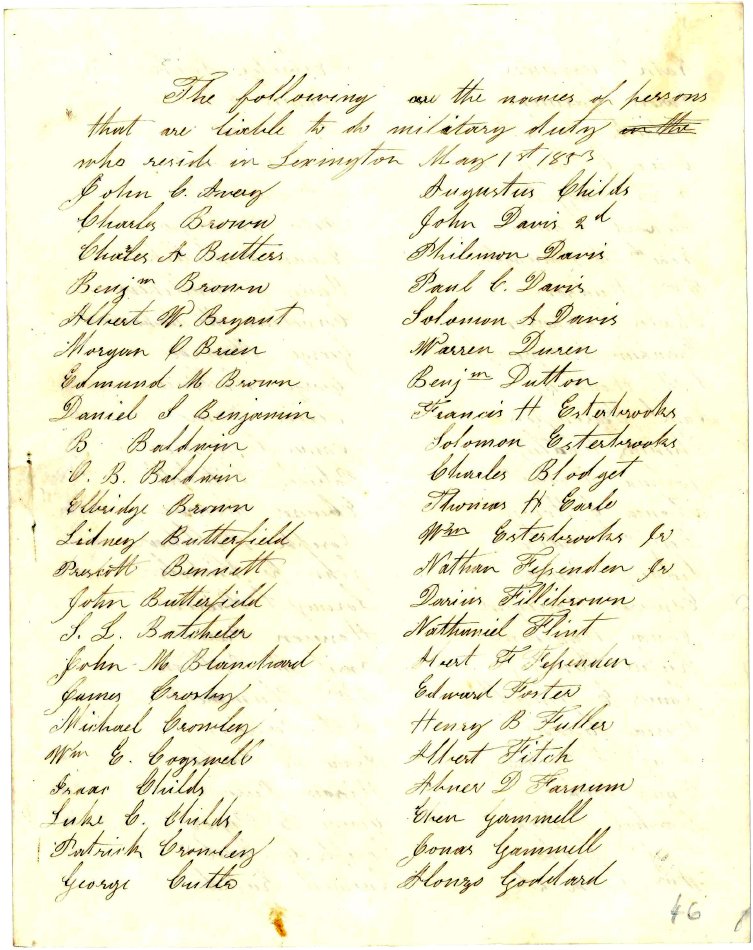 The following are the names of persons
that are liable to do military duty in the
who reside in Lexington May 1st 1853
John C. Avery
Charles Brown
Charles A Butters
Benjm Brown
Albert W. Bryant
Morgan O Brien
Edmund M Brown
Daniel S Benjamin
B. Baldwin
O. B. Baldwin
Elbridge Brown
Sidney Butterfield
Prescott Bennett
John Butterfield
S. L. Batcheler
John M Blanchard
James Crosby
Michael Crowley
Wm E. Cogswell
Isaac Childs
Luke C. Childs
Patrick Crowley
George Cutler
Augustus Childs
John Davis 2d
Philemon Davis
Paul C. Davis
Solomon A Davis
Warren Duren
Benjm Dutton
Francis H Esterbrooks
Solomon Esterbrooks
Charles Blodget
Thomas H Earle
Wm Esterbrooks Jr
Nathan Fessenden Jr
Darius Fillibrown
Nathaniel Flint
F Fessenden
Edward Foster
Henry B Fuller
Albert Fitch
Abner D Farnum
Eben Gammell
Jonas Gammell
Alonzo Goddard
46